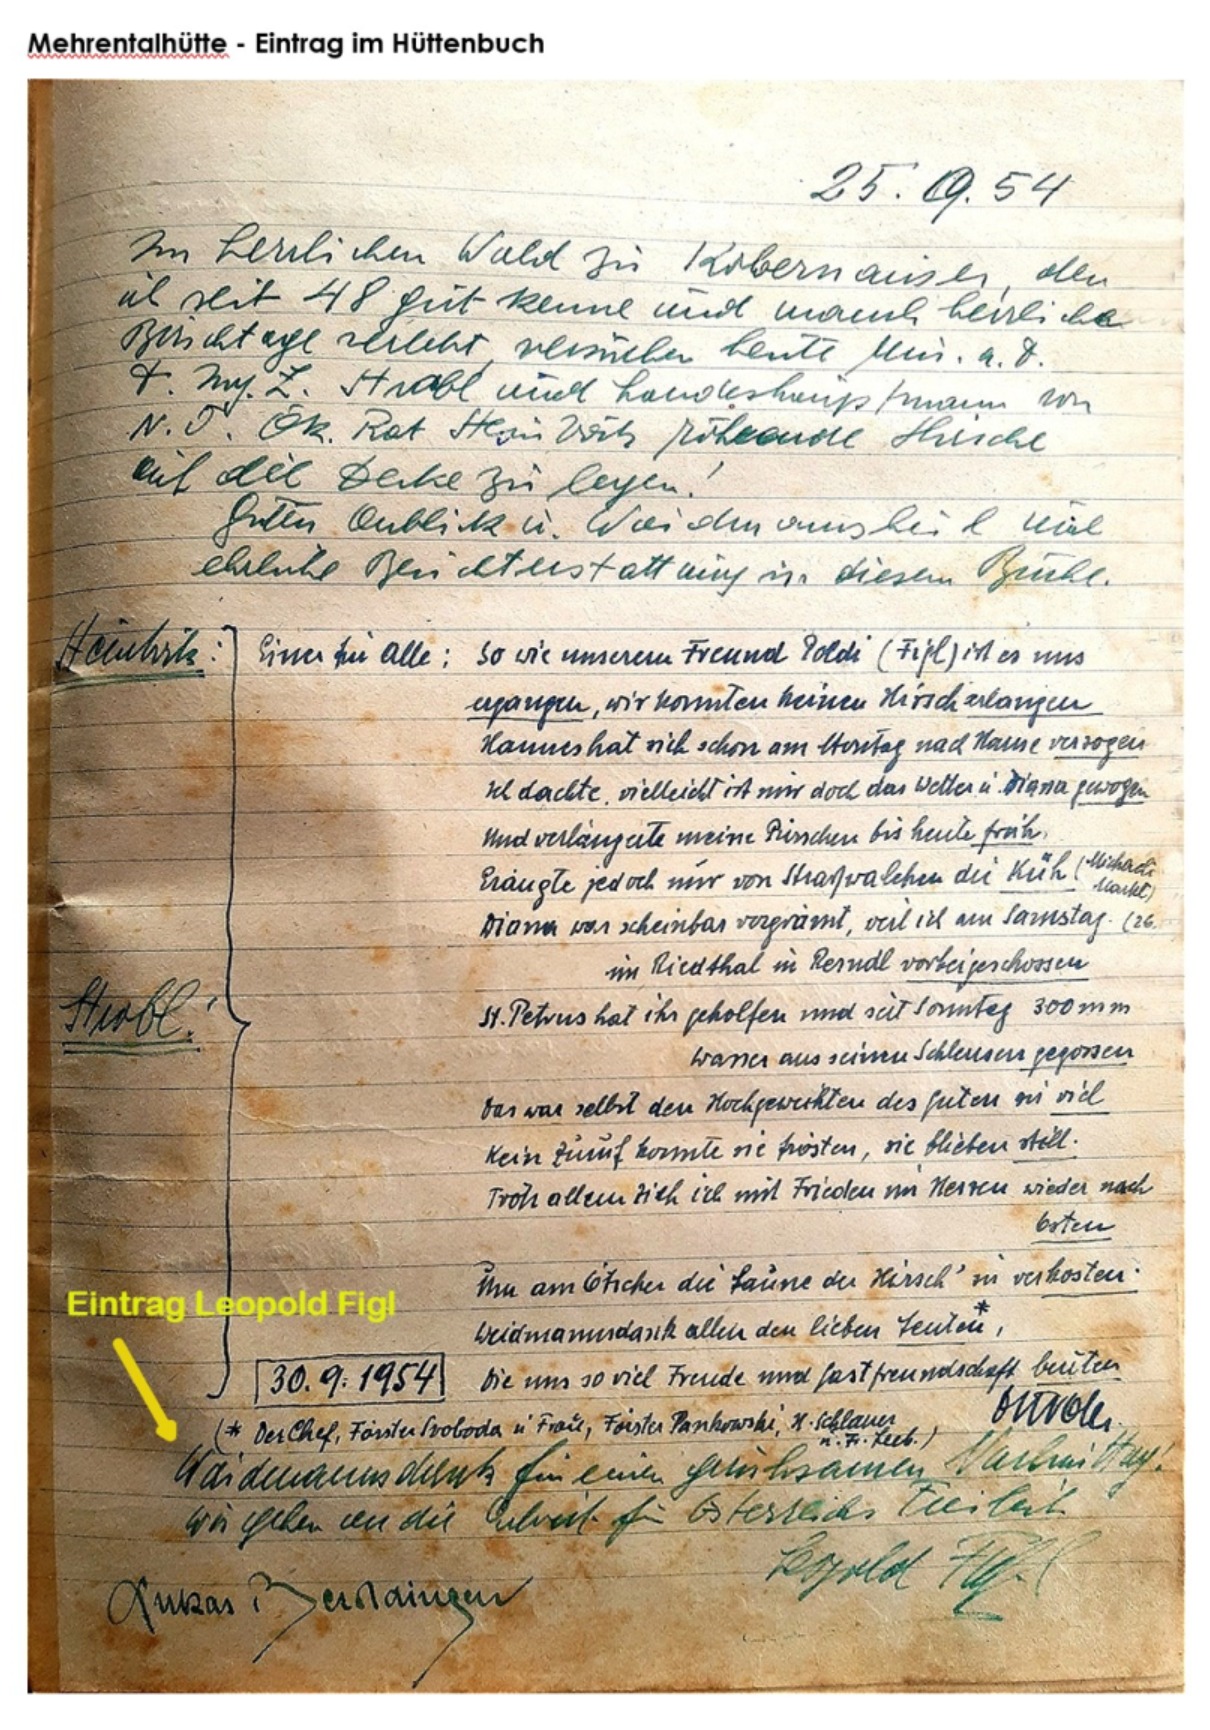 Mehrentalhütte - Eintrag im Hüttenbuch
25. 9. 54
Im herrlichen Wald zu Kobernausser, den
ich seit 48 gut kenne und manch herrliche
verlebt, versuchen heute Min. a. D.
Strobl und Landeshauptmann von
N. Ö. Ök. Rat röhrende Hirsche
auf die Decke zu legen!
Guten Anblick u. Waidmannsheil und
ehrliche Berichterstattung in diesem Buche.
Einer für Alle: So wie unserem Freund Poldi (Figl) ist es uns
ergangen, wir konnten keinen Hirsch erlangen
Hannes hat sich schon am Montag nach Hause verzogen
Ich dachte, vielleicht ist mir doch das Wetter u. Diana gewogen
Und verlängerte meine Pirschen bis heute früh.
Eräugte jedoch nur von Straßwalchen die Küh (Michaeli
Markt)
Diana war scheinbar vergrämt, weil ich am Samstag (26.
im Riedthal in Rerndl vorbeigeschossen
Strobl:
St. Petrus hat ihr geholfen und seit Sonntag 300 mm
Wasser aus seinen Schleusen gegossen
Das war selbst den Hochgeweihten des guten zu viel
Kein Zuruf konnte sie trösten, sie blieben still.
Trotz allem zieh ich mit Frieden im Herzen wieder nach
Osten
Um am Ötscher die Laune der Hirsch' zu verkosten.
Weidmannsdank allen den lieben Leuten*,
Eintrag Leopold Figl
30. 9. 1954 Die uns so viel Freude und Gastfreundschaft beuten
(* Der Chef, Förster Svoboda u Frau, Förster Pankowski, H. Schlauer
u. Fr. Leeb.)
Waidmannsdank für einen geruhsamen
Wir gehen an die Arbeit für Österreichs Freiheit
Leopold Figl
Lukas